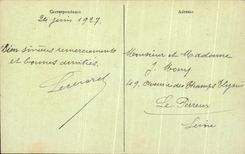 Correspondance
Adresse
24 juin 1927.
Bien sincères remerciements
et bonnes amitiés.
Monsieur et Madame
J. Mony
49 Avenue des Champs Elysées
Le Perreux
Seine